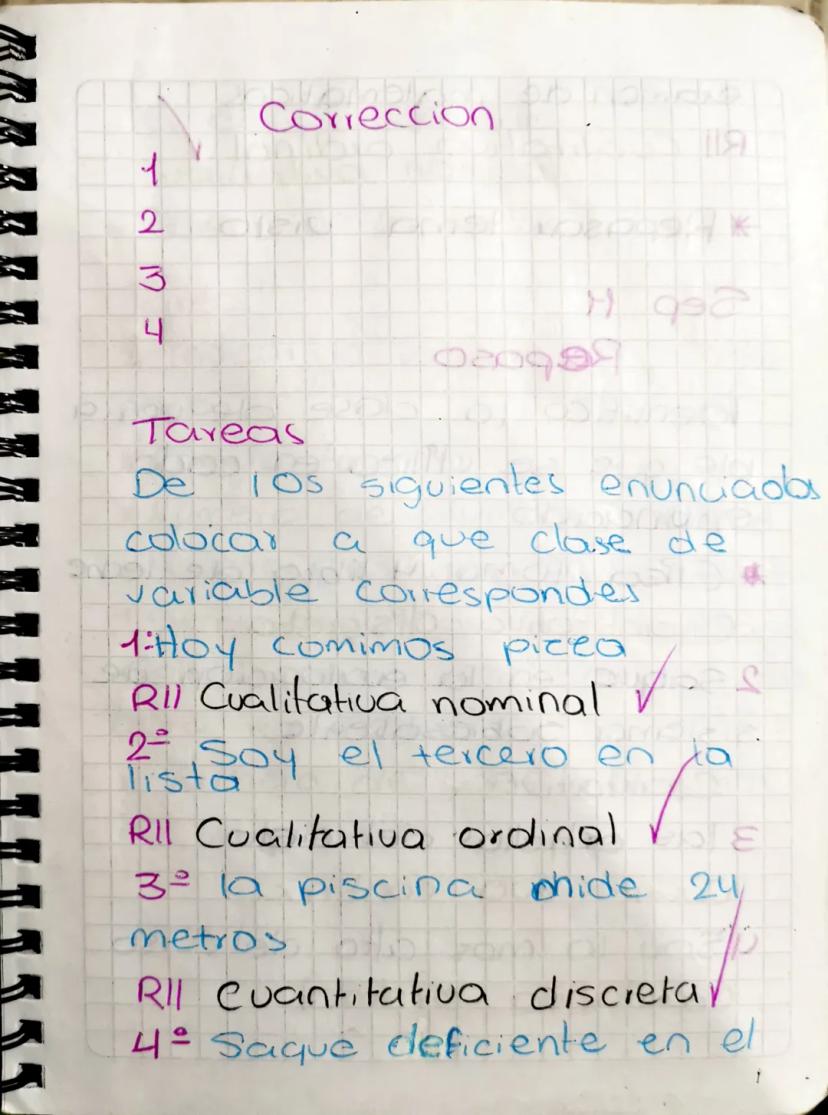 Correccion
1
2
3
4
Tareas
De los siguientes enunciados
colocar a que clase de
variable correspondes
1: Hoy comimos pizza
R// Cualitativa nominal ✓
2º Soy el tercero en la
lista
R// Cualitativa ordinal ✓
3º la piscina mide 24
metros
R// Cuantitativa discreta ✓
4º Saque deficiente en el